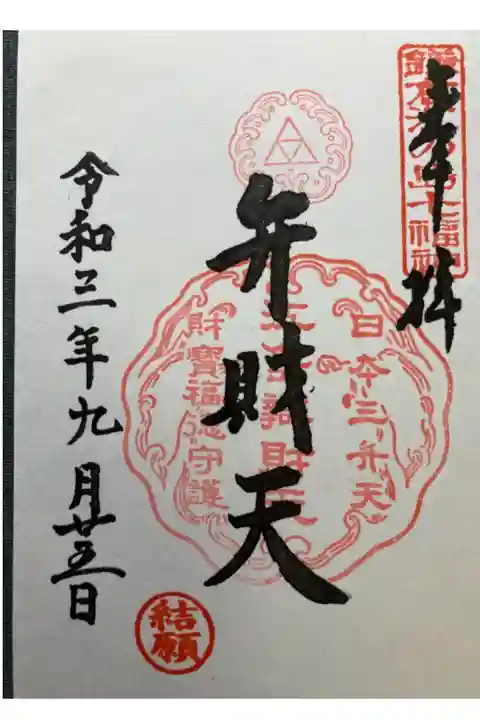 奉拝
鎌倉江の島七福神
弁財天
日本三弁天
財寶福徳守護
令和三年九月廿五日
結願